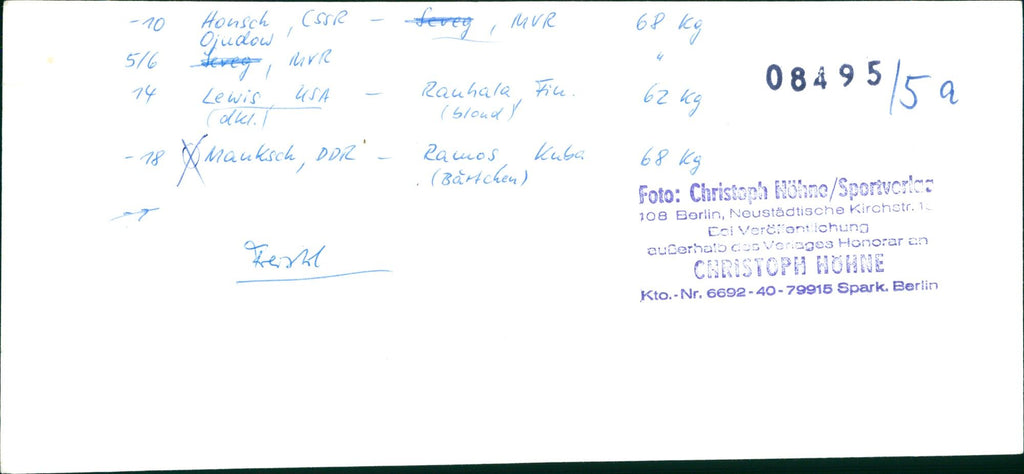 -10 Honsch, CSSR - Sereg, MVR 68 Kg
Ojudow
5/6 Sereg, MVR "
14 Lewis, USA - Rauhala, Fin. 62 Kg
(dkl.) (blond)
-18 Mauksch, DDR - Ramos, Kuba 68 Kg
(Bärtchen)
08495/5a
Foto: Christoph Höhne/Sportverlag
108 Berlin, Neustädtische Kirchstr. 15
Bei Veröffentlichung
außerhalb des Verlages Honorar an
CHRISTOPH HÖHNE
Kto.-Nr. 6692-40-79915 Spark. Berlin
Freistil